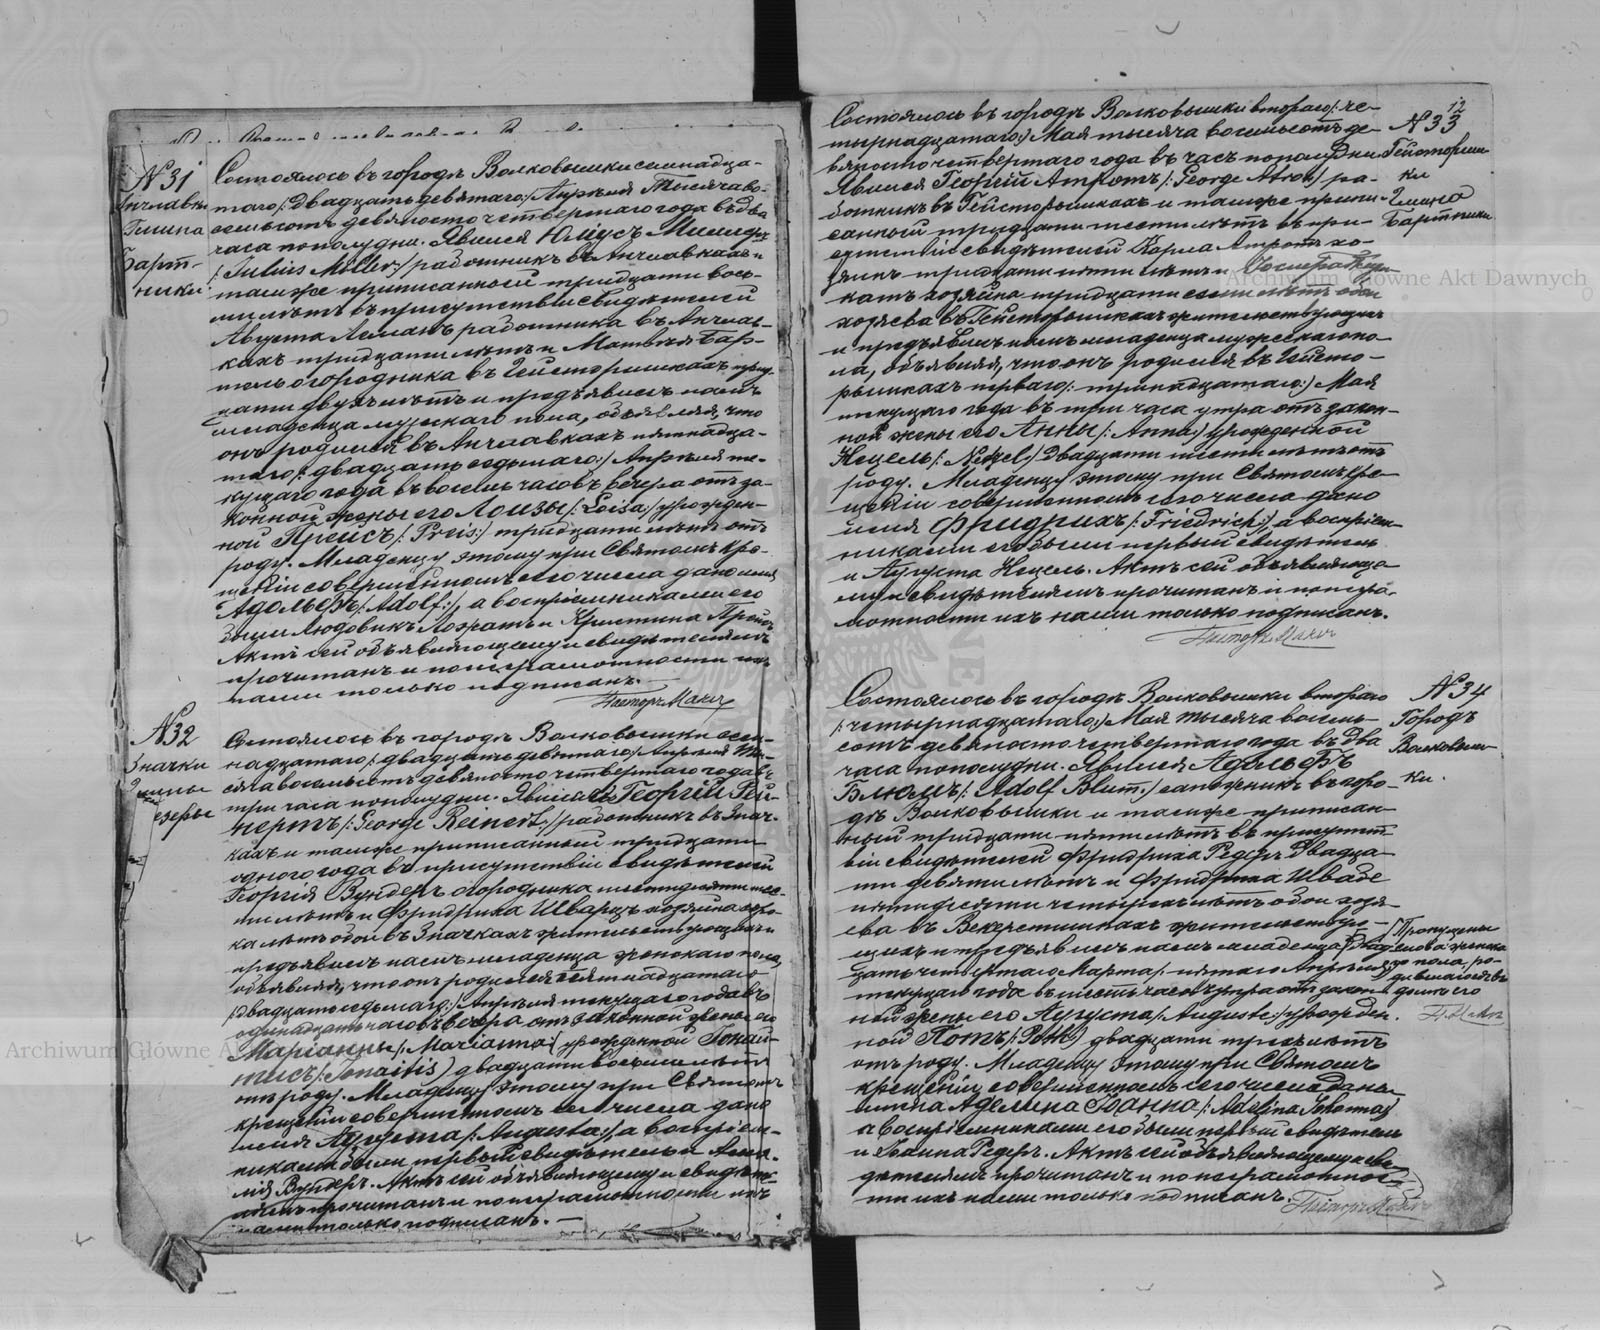 № 31
Анчлавки
Гмина
Бартники
Состоялось въ городѣ Волковышки семнадца-
таго /: двадцать девятаго:/ Апрѣля тысяча во-
семьсотъ девяносто четвертаго года въ два
часа пополудни. Явился Юліусъ Миллеръ
/: Julius Miller:/ работникъ въ Анчлавкахъ и
тамже приписанный тридцати вось-
ми лѣтъ въ присутствіи свидѣтелей
Августа Леманъ работника въ Анчлав-
кахъ тридцати лѣтъ и Матвѣя Бар-
огородника въ Гейсторишкахъ трид-
цати двухъ лѣтъ и предъявилъ намъ
младенца мужскаго пола, объявляя, что
онъ родился въ Анчлавкахъ пятнадца-
таго /: двадцать седьмаго:/ Апрѣля те-
кущаго года въ восемь часовъ вечера отъ за-
конной жены его Лоизы /: Loisa:/ урожден-
ной Прейсъ /: Preis:/ тридцати лѣтъ отъ
роду. Младенцу этому при Святомъ Кре-
щеніи совершенномъ сего числа дано имя
Адольфъ /: Adolf:/, а воспріемниками его
были Людовикъ Лозратъ и Христина Прейсъ.
Актъ сей объявляющему и свидѣтелямъ
прочитанъ и по неграмотности ихъ
нами только подписанъ.
Пасторъ
№ 32
Значки
Гмины
Состоялось въ городѣ Волковышки осем-
надцатаго /: двадцать девятаго:/ Апрѣля ты-
сяча восемьсотъ девяносто четвертаго года въ
три часа пополудни. Явился Георгій Рей-
нертъ /: George Reinert:/ работникъ въ Знач-
кахъ и тамже приписанный тридцати
одного года въ присутствіи свидѣтелей
Георгія Вундеръ огородника шестидесяти
лѣтъ и Фридриха Шварцъ хозяина соро-
ка лѣтъ обои въ Значкахъ жительствующихъ и
предъявилъ намъ младенца женскаго пола,
объявляя, что онъ родился пятнадцатаго
/: двадцать седьмаго:/ Апрѣля текущаго года въ
одинадцать часовъ вечера отъ законной жены его
Маріанны /: Marianna:/ урожденной Іонай-
тисъ /: Jonaitis:/ двадцати восьми лѣтъ
отъ роду. Младенцу этому при Святомъ
крещеніи совершенномъ сего числа дано
имя Аугуста /: Augusta:/, а воспріем-
никами были первый свидѣтель и Ама-
лія Вундеръ. Актъ сей объявляющему и свидѣте-
лямъ прочитанъ и по неграмотности ихъ
нами только подписанъ. —
12
№ 33
Гейсториш-
ки
Гмина
Бартники
Состоялось въ городѣ Волковышки втораго /: че-
тырнадцатаго:/ Мая тысяча восемьсотъ де-
вяносто четвертаго года въ часъ пополудни
Явился Георгій Атротъ /: George Atrot:/ ра-
ботникъ въ Гейсторишкахъ и тамже припи-
санный тридцати шести лѣтъ въ при-
сутствіи свидѣтелей Карла Атротъ хо-
зяинъ тридцати пяти лѣтъ и
катъ хозяина тридцати семи лѣтъ обои
хозяева въ Гейсторишкахъ жительствующихъ
и предъявилъ намъ младенца мужескаго по-
ла, объявляя, что онъ родился въ Гейсто-
ришкахъ перваго /: тринадцатаго:/ Мая
текущаго года въ три часа утра отъ закон-
ной жены его Анны /: Anna:/ урожденной
Нецель /: Netzel:/ двадцати шести лѣтъ отъ
роду. Младенцу этому при Святомъ Кре-
щеніи совершенномъ сего числа дано
имя Фридрихъ /: Friedrich:/, а воспріем-
никами его были первый свидѣтель
и Аугуста Нецель. Актъ сей объявляюще-
му и свидѣтелямъ прочитанъ и по негра-
мотности ихъ нами только подписанъ.
Пасторъ
№ 34
Городъ
Волковыш-
ки.
Состоялось въ городѣ Волковышки втораго
/: четырнадцатаго:/ Мая тысяча восемь-
сотъ девяносто четвертаго года въ два
часа пополудни. Явился Адольфъ
Блюмъ /: Adolf Blum:/ сапожникъ въ горо-
дѣ Волковышки и тамже приписан-
ный тридцати пяти лѣтъ въ присутст-
віи свидѣтелей Фридриха Редеръ двадца-
ти девяти лѣтъ и Фридриха Шваде
пятидесяти четырехъ лѣтъ обои хозя-
ева въ Векеротишкахъ жительствую-
щихъ и предъявилъ намъ младенца двад-
цать четвертаго Марта /: пятаго Апрѣля:/
текущаго года въ шесть часовъ утра отъ закон-
ной жены его Аугуста /: Auguste:/ урожден-
ной Потъ /: Poth:/ двадцати трехъ лѣтъ
отъ роду. Младенцу этому при Святомъ
крещеніи совершенномъ сего числа даны
имена Аделина Іоанна /: Adelina Johanna:/
а воспріемниками его были первый свидѣтель
и Іоанна Редеръ. Актъ сей объявляющему и сви-
дѣтелямъ прочитанъ и по неграмотнос-
ти ихъ нами только подписанъ.
Пасторъ
Пропущены
слова: женска-
го пола, ро-
дившагося въ
домѣ его
Archiwum Główne Akt Dawnych
Archiwum Główne